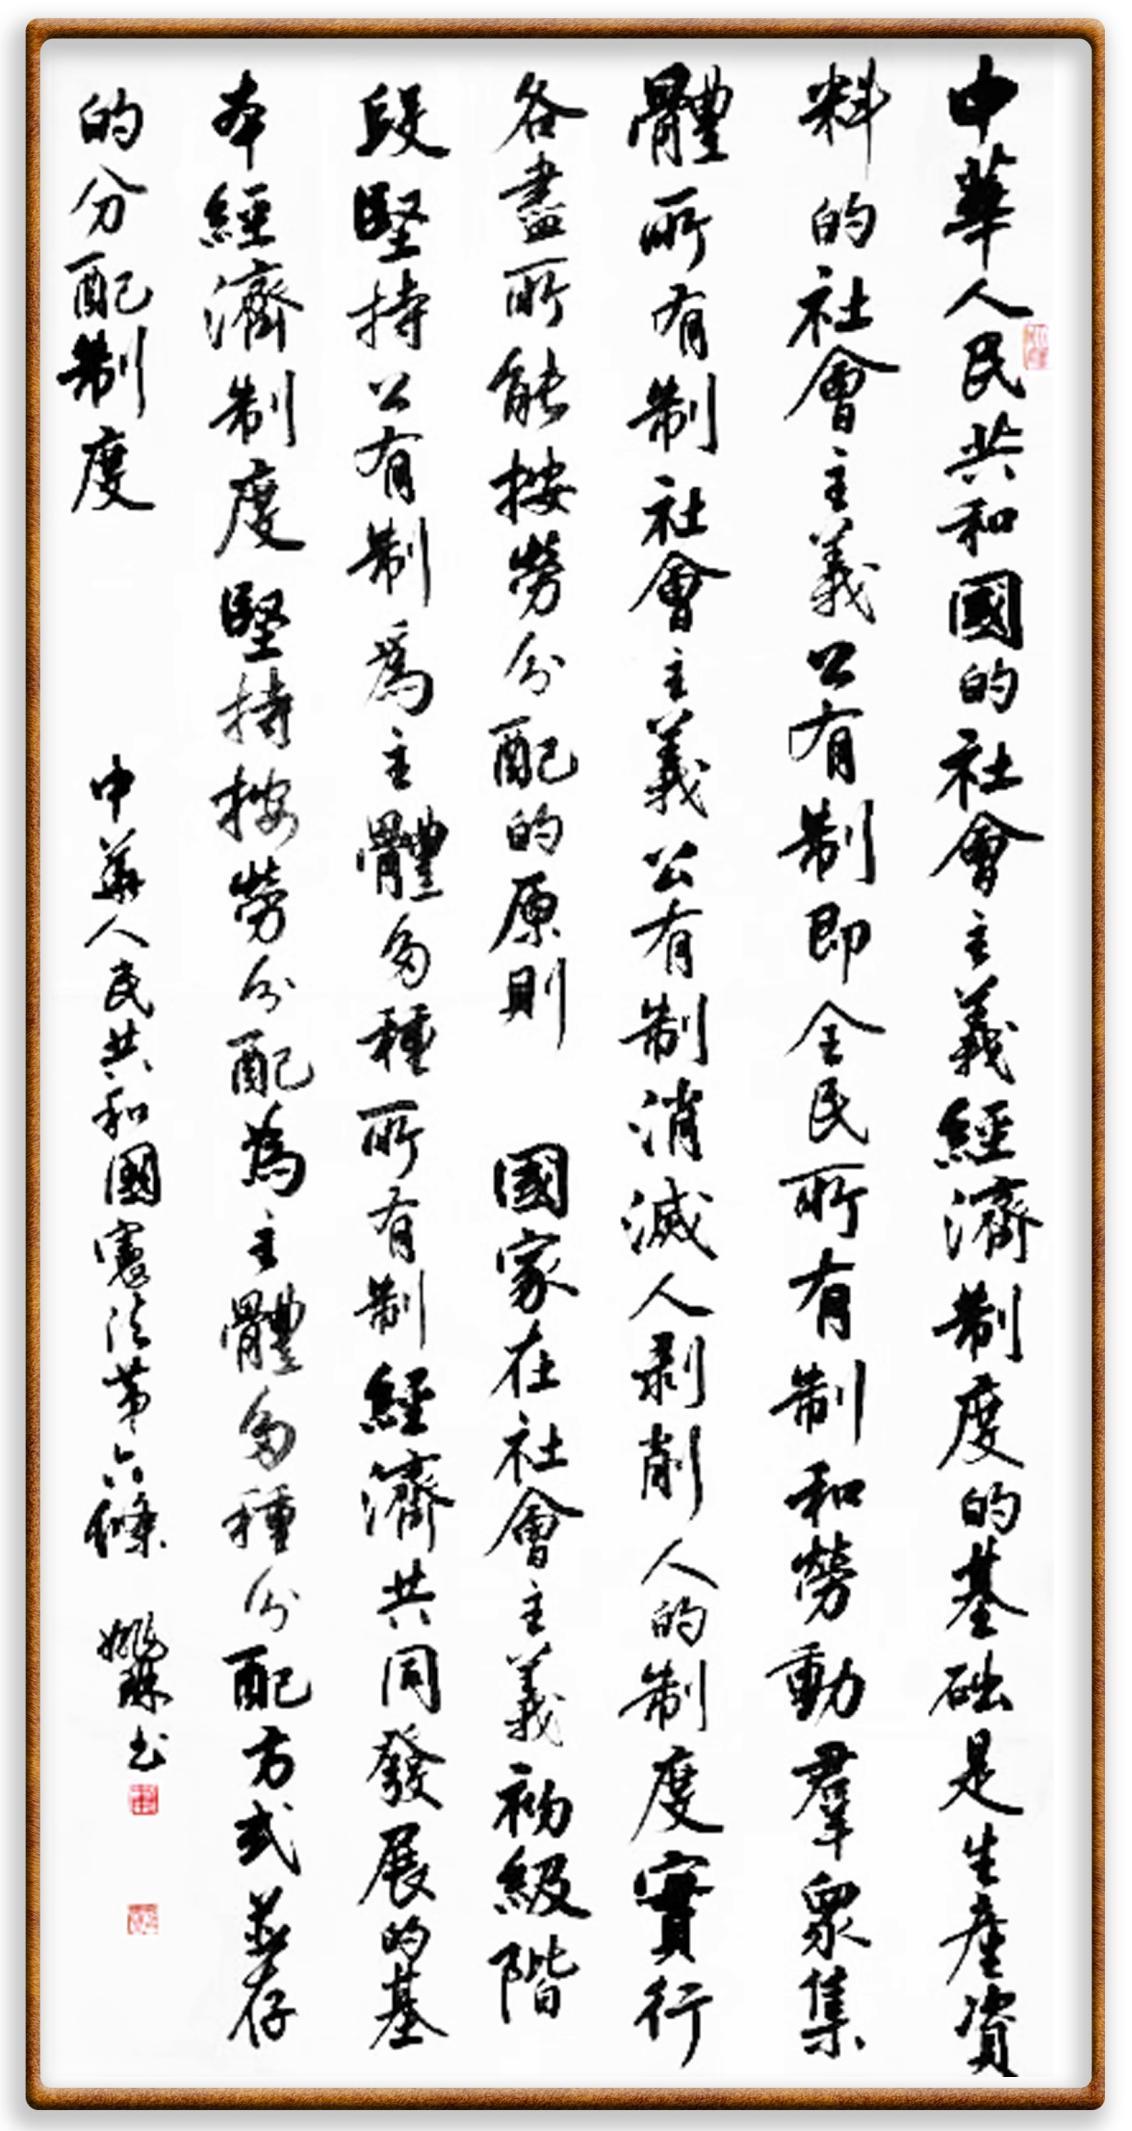 中華人民共和國的社會主義經濟制度的基础是生產資
料的社會主義公有制即全民所有制和勞動羣衆集
體所有制社會主義公有制消滅人剥削人的制度實行
各盡所能按勞分配的原則 國家在社會主義初級階
段堅持公有制爲主體多種所有制經濟共同發展的基
本經濟制度堅持按勞分配為主體多種分配方式並存
的分配制度
中華人民共和國憲法第六條 書